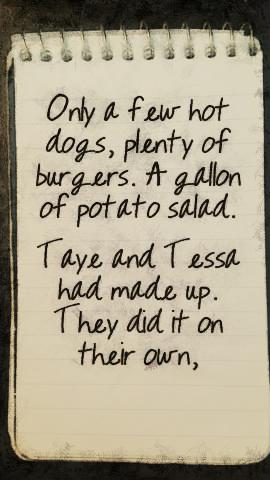 Only a few hot
dogs, plenty of
burgers. A gallon
of potato salad.
Taye and Tessa
had made up.
They did it on
their own,